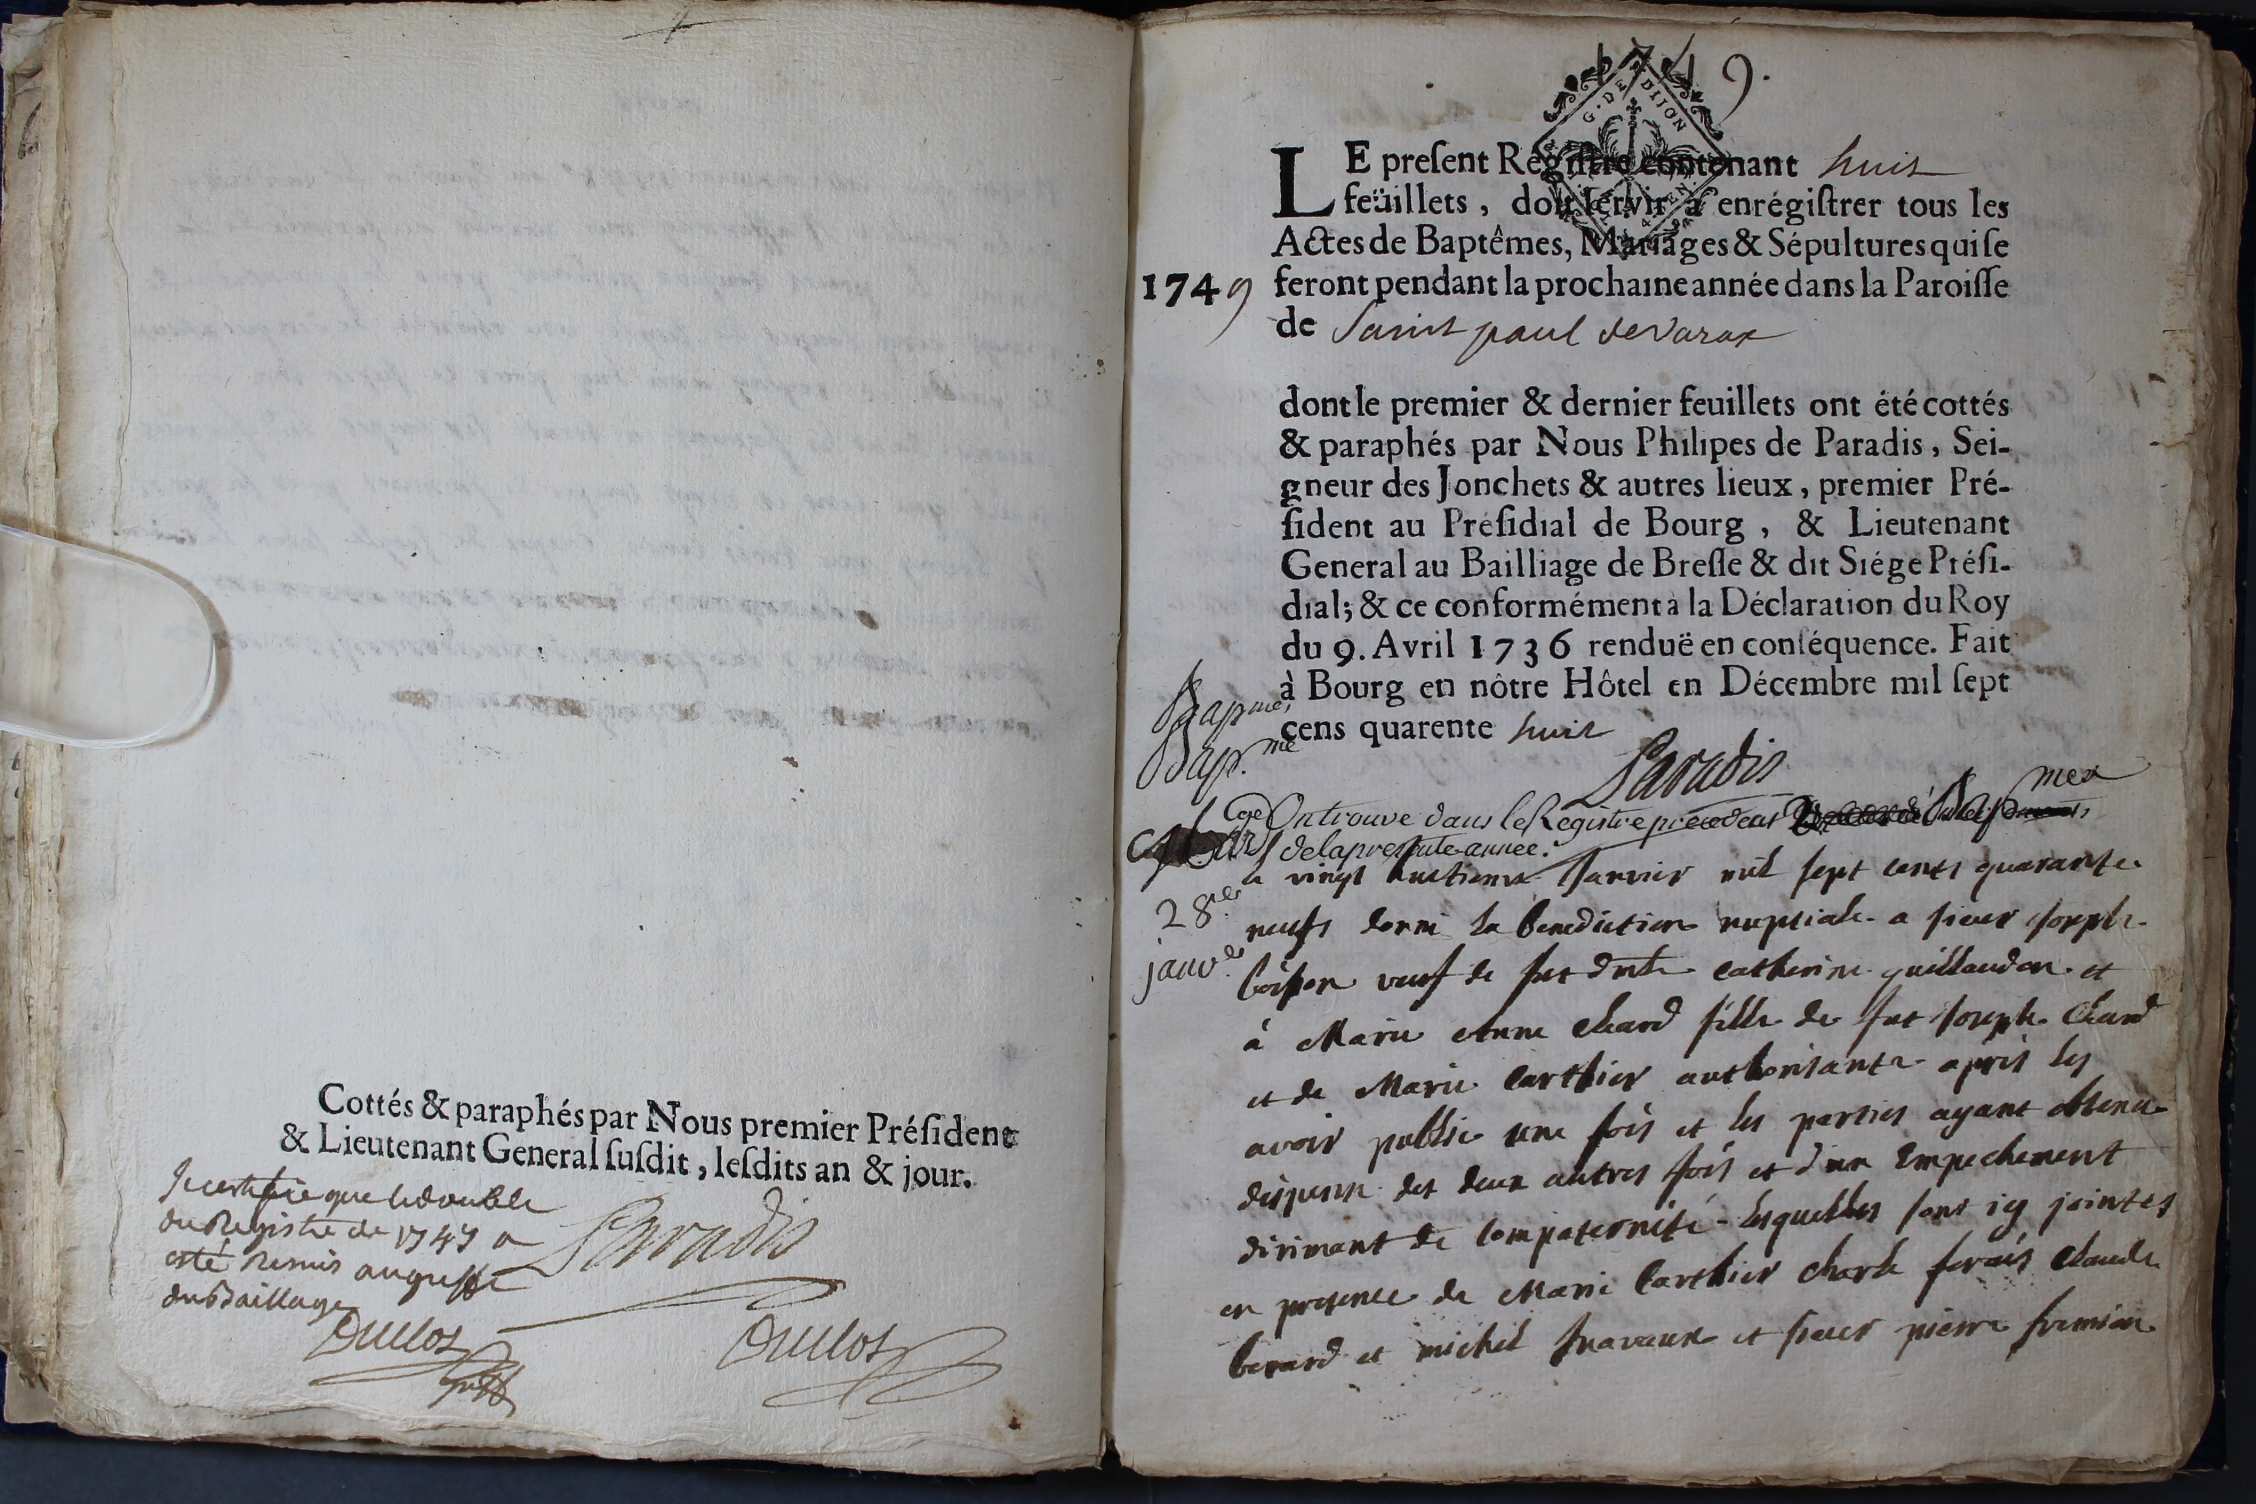 Cottés & paraphés par Nous premier Préſident
& Lieutenant General ſuſdit, leſdits an & jour.
Je certifie que le double
du Registre de 1747 a
esté remis au greffe
du Baillage
Paradis
Duclos
Duclos
1749.
G. DE DIJON
LE preſent Regiſtre contenant huit
feüillets, doit ſervir à enrégiſtrer tous les
Actes de Baptêmes, Mariages & Sépultures qui ſe
1749 feront pendant la prochaine année dans la Paroiſſe
de Saint paul de Varax
dont le premier & dernier feuillets ont été cottés
& paraphés par Nous Philipes de Paradis, Sei-
gneur des Jonchets & autres lieux, premier Pré-
ſident au Préſidial de Bourg, & Lieutenant
General au Bailliage de Breſſe & dit Siége Préſi-
dial; & ce conformément à la Déclaration du Roy
du 9. Avril 1736 renduë en conſéquence. Fait
à Bourg en nôtre Hôtel en Décembre mil ſept
cens quarente huit
Bapmes
Bap.me
Paradis
On trouve dans le Registre precedent
de la presente annee.
28
janv.
vingt huitieme Janvier mil sept cents quarante
neufs donné la benediction nuptiale a sieur Joseph
veuf de fut catherine guillaudon et
à Marie Anne Chard fille de fut Joseph Chard
et de Marie Carthier authorisante après les
avoir publié une fois et les parties ayant obtenu
dispense des deux autres fois et d'un Empechement
dirimant de Compaternité lesquelles sont icy jointes
en presence de Marie Carthier Charle Claude
berard et michel et sieur pierre